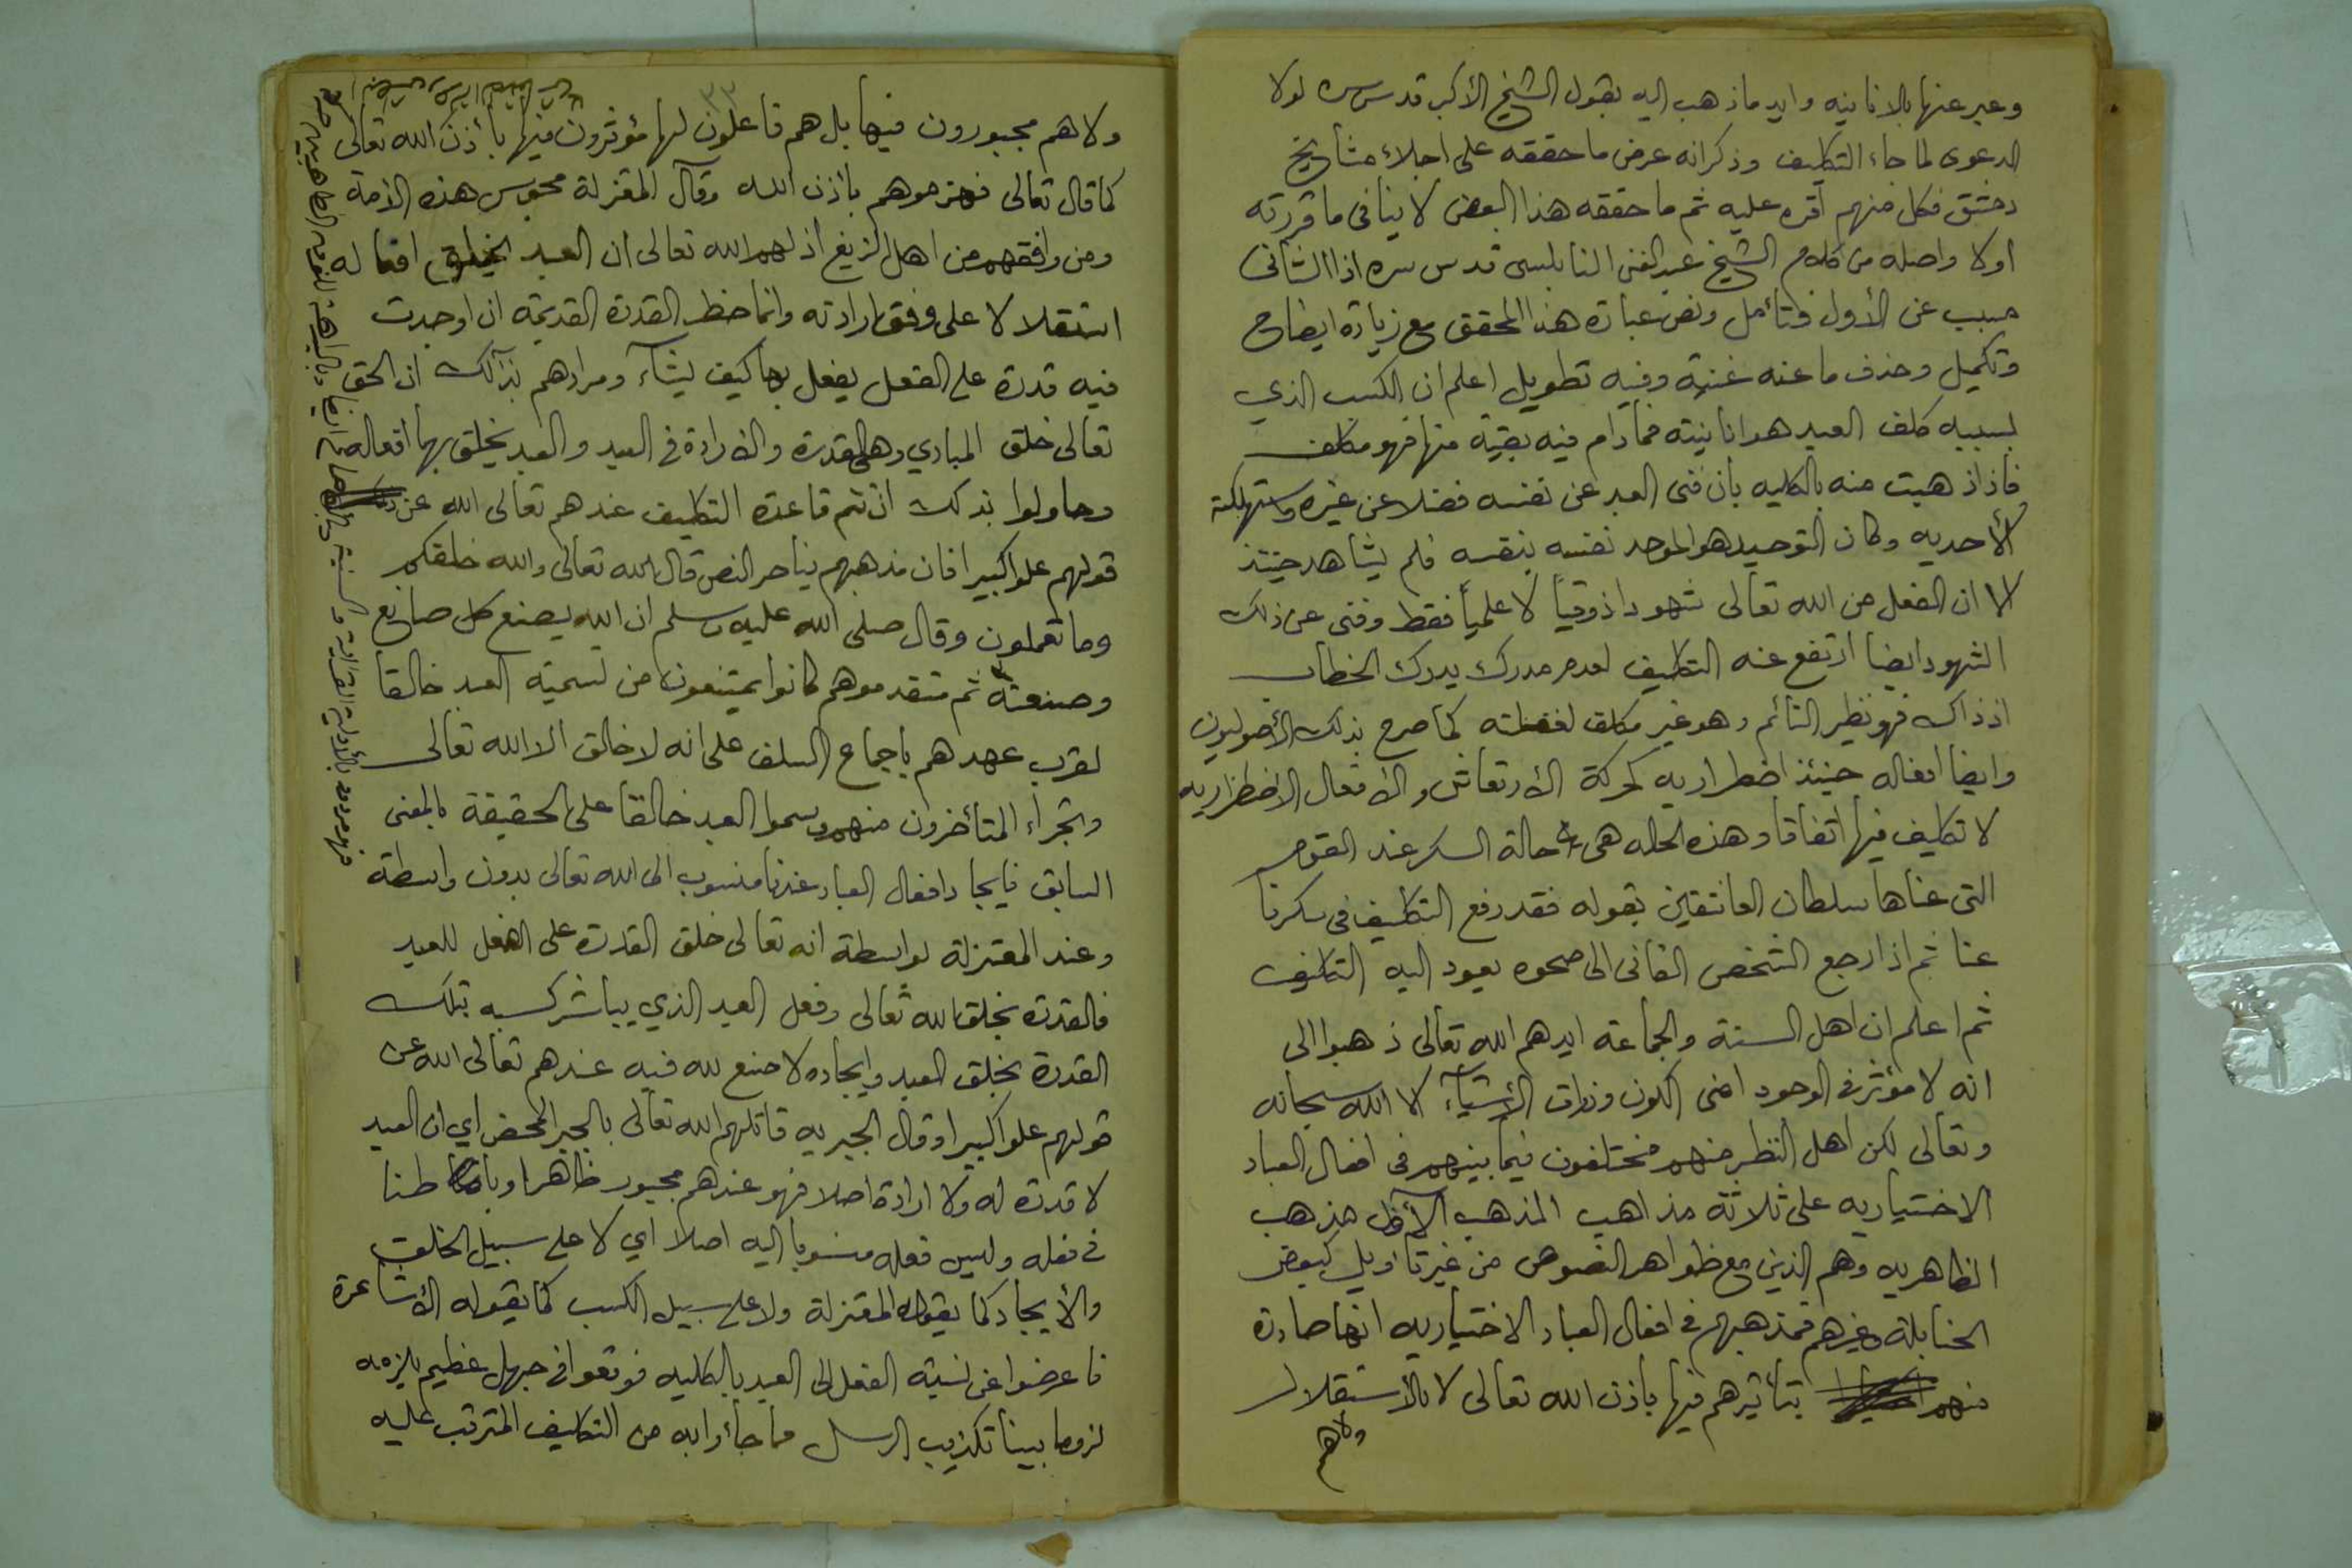 وعبر عنها بالانانيه وايد ماذهب اليه بقول الشيخ الأكبر قدس سره لولا
الدعوى لما جاء التكليف وذكر انه عرض ما حققه على اجلاء مشايخ
دمشق فكل منهم أقره عليه ثم ما حققه هذا البعض لا ينافي ما قررته
اولا واصله من كلام الشيخ عبد الغني النابلسي قدس سره اذ الثاني
مسبب عن الأول فتأمل ونص عبارة هذا المحقق مع زيادة ايضاح
وتكميل وحذف ما عنه غنية وفيه تطويل اعلم ان الكسب الذي
بسببه كلف العبد هو انانيته فما دام فيه بقية منها فهو مكلف
فاذا ذهبت منه بالكليه بأن فنى العبد عن نفسه فضلا عن غيره واستهلكته
الأحديه وكان التوحيد هو الموحد نفسه بنفسه فلم يشاهد حينئذ
الا ان الفعل من الله تعالى شهودا ذوقياً لا علمياً فقط وفنى عن ذلك
الشهود ايضا ارتفع عنه التكليف لعدم مدرك يدرك الخطاب
اذ ذاك فهو نظير النائم وهو غير مكلف لغفلته كما صرح بذلك الأصوليون
وايضا افعاله حينئذ اضطراريه كحركة الأرتعاش والأفعال الاضطراريه
لا تكليف فيها اتفاقا وهذه الحاله هي حالة السكر عند القوم
التى عناها سلطان العاشقين بقوله فقد رفع التكليف في سكرنا
عنا ثم اذا رجع الشخص الفانى الى صحوه يعود اليه التكليف
ثم اعلم ان اهل السنة والجماعة ايدهم الله تعالى ذهبوا الى
انه لا مؤثر في الوجود اعنى الكون وذرات الأشيآء الا الله سبحانه
وتعالى لكن اهل النظر منهم مختلفون فيما بينهم في افعال العباد
الاختياريه على ثلاثة مذاهب المذهب الأول مذهب
الظاهريه وهم الذين مع ظواهر النصوص من غير تاويل كبعض
الحنابلة وغيرهم فمذهبهم في افعال العباد الاختياريه انها صادرة
منهم بتأثيرهم فيها باذن الله تعالى لا بالأستقلال
ولاهم
٣٣
ولاهم مجبورون فيها بل هم فاعلون لها مؤثرون فيها بأذن الله تعالى
كما قال تعالى فهزموهم بأذن الله وقآل المعتزلة مجوس هذه الأمة
ومن وافقهم من اهل الزيغ اذلهم الله تعالى ان العبد يخلق افعاله
استقلالا على وفق ارادته وانما حظ القدرة القديمة ان اوجدت
فيه قدرة على الفعل يفعل بها كيف يشآء ومرادهم بذآلك ان الحق
تعالى خلق المبادي وهي القدرة والارادة في العبد والعبد يخلق بها أفعاله
وحاولوا بذلك ان تتم قاعدة التكليف عندهم تعالى الله عن
قولهم علوا كبيرا فان مذهبهم يناحر النص قال الله تعالى والله خلقكم
وما تعملون وقال صلى الله عليه وسلم ان الله يصنع كل صانع
وصنعته ثم متقدموهم كانوا يمتنعون من تسمية العبد خالقا
لقرب عهدهم باجماع السلف على انه لا خالق الا الله تعالى
وتجراء المتأخرون منهم وسموا العبد خالقا على الحقيقة بالمعنى
السابق فايجاد افعال العباد عندنا منسوب الى الله تعالى بدون واسطة
وعند المعتزلة بواسطة انه تعالى خلق القدرة على الفعل للعبد
فالقدرة بخلق الله تعالى وفعل العبد الذي يباشر كسبه بتلك
القدرة بخلق العبد وايجاده لا صنع لله فيه عندهم تعالى الله عن
قولهم علوا كبيرا وقال الجبريه قاتلهم الله تعالى بالجبر المحض اي ان العبد
لا قدرة له ولا ارادة اصلا فهو عندهم مجبور ظاهرا وباطنا
في فعله وليس فعله منسوبا اليه اصلا اي لا على سبيل الخلق
والأيجاد كما يقوله المعتزلة ولا على سبيل الكسب كما يقوله الأشاعرة
فاعرضوا عن نسبة الفعل الى العبد بالكليه فوقعوا في جهل عظيم يلزمه
لزوما بينا تكذيب الرسل فما جأوا به من التكليف المترتب عليه